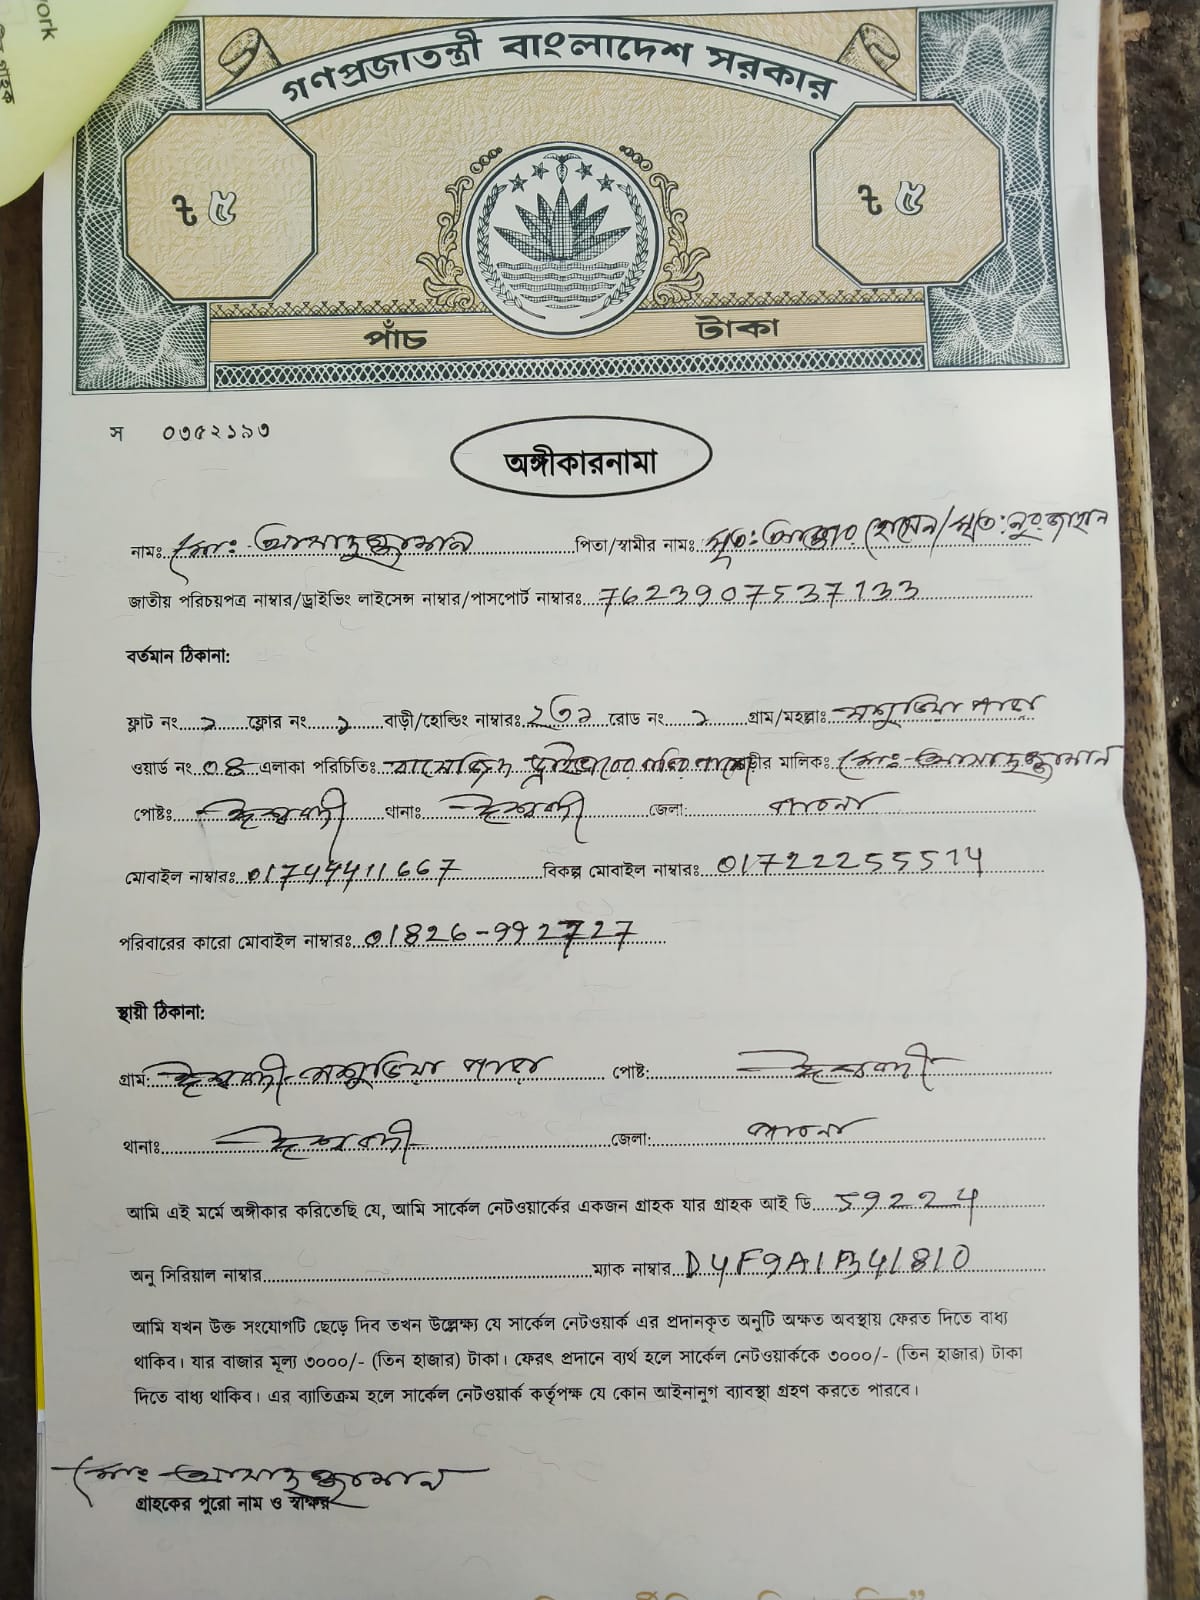 ork
গ্রাহক
গণপ্রজাতন্ত্রী বাংলাদেশ সরকার
৳ ৫ ৳ ৫
পাঁচ টাকা
স ০৩৫২১৯৩
অঙ্গীকারনামা
নামঃ মোঃ আসাদুজ্জামান পিতা/স্বামীর নামঃ মৃত: হোসেন/মৃত: নুরজাহান
জাতীয় পরিচয়পত্র নাম্বার/ড্রাইভিং লাইসেন্স নাম্বার/পাসপোর্ট নাম্বারঃ 7623907537133
বর্তমান ঠিকানা:
ফ্লাট নং ১ ফ্লোর নং ১ বাড়ী/হোল্ডিং নাম্বারঃ ২৩১ রোড নং ১ গ্রাম/মহল্লাঃ পাড়া
ওয়ার্ড নং 04 এলাকা পরিচিতিঃ মালিকঃ মোঃ আসাদুজ্জামান
পোষ্টঃ ঈশ্বরদী থানাঃ ঈশ্বরদী জেলা: পাবনা
মোবাইল নাম্বারঃ 01744411667 বিকল্প মোবাইল নাম্বারঃ 01722255514
পরিবারের কারো মোবাইল নাম্বারঃ 01826-992727
স্থায়ী ঠিকানা:
গ্রাম: ঈশ্বরদী পাড়া পোষ্ট: ঈশ্বরদী
থানাঃ ঈশ্বরদী জেলা: পাবনা
আমি এই মর্মে অঙ্গীকার করিতেছি যে, আমি সার্কেল নেটওয়ার্কের একজন গ্রাহক যার গ্রাহক আই ডি 59224
অনু সিরিয়াল নাম্বার ম্যাক নাম্বার D4F9A1B41810
আমি যখন উক্ত সংযোগটি ছেড়ে দিব তখন উল্লেক্ষ্য যে সার্কেল নেটওয়ার্ক এর প্রদানকৃত অনুটি অক্ষত অবস্থায় ফেরত দিতে বাধ্য
থাকিব। যার বাজার মূল্য ৩০০০/- (তিন হাজার) টাকা। ফেরৎ প্রদানে ব্যর্থ হলে সার্কেল নেটওয়ার্ককে ৩০০০/- (তিন হাজার) টাকা
দিতে বাধ্য থাকিব। এর ব্যাতিক্রম হলে সার্কেল নেটওয়ার্ক কর্তৃপক্ষ যে কোন আইনানুগ ব্যাবস্থা গ্রহণ করতে পারবে।
মোঃ আসাদুজ্জামান
গ্রাহকের পুরো নাম ও স্বাক্ষর